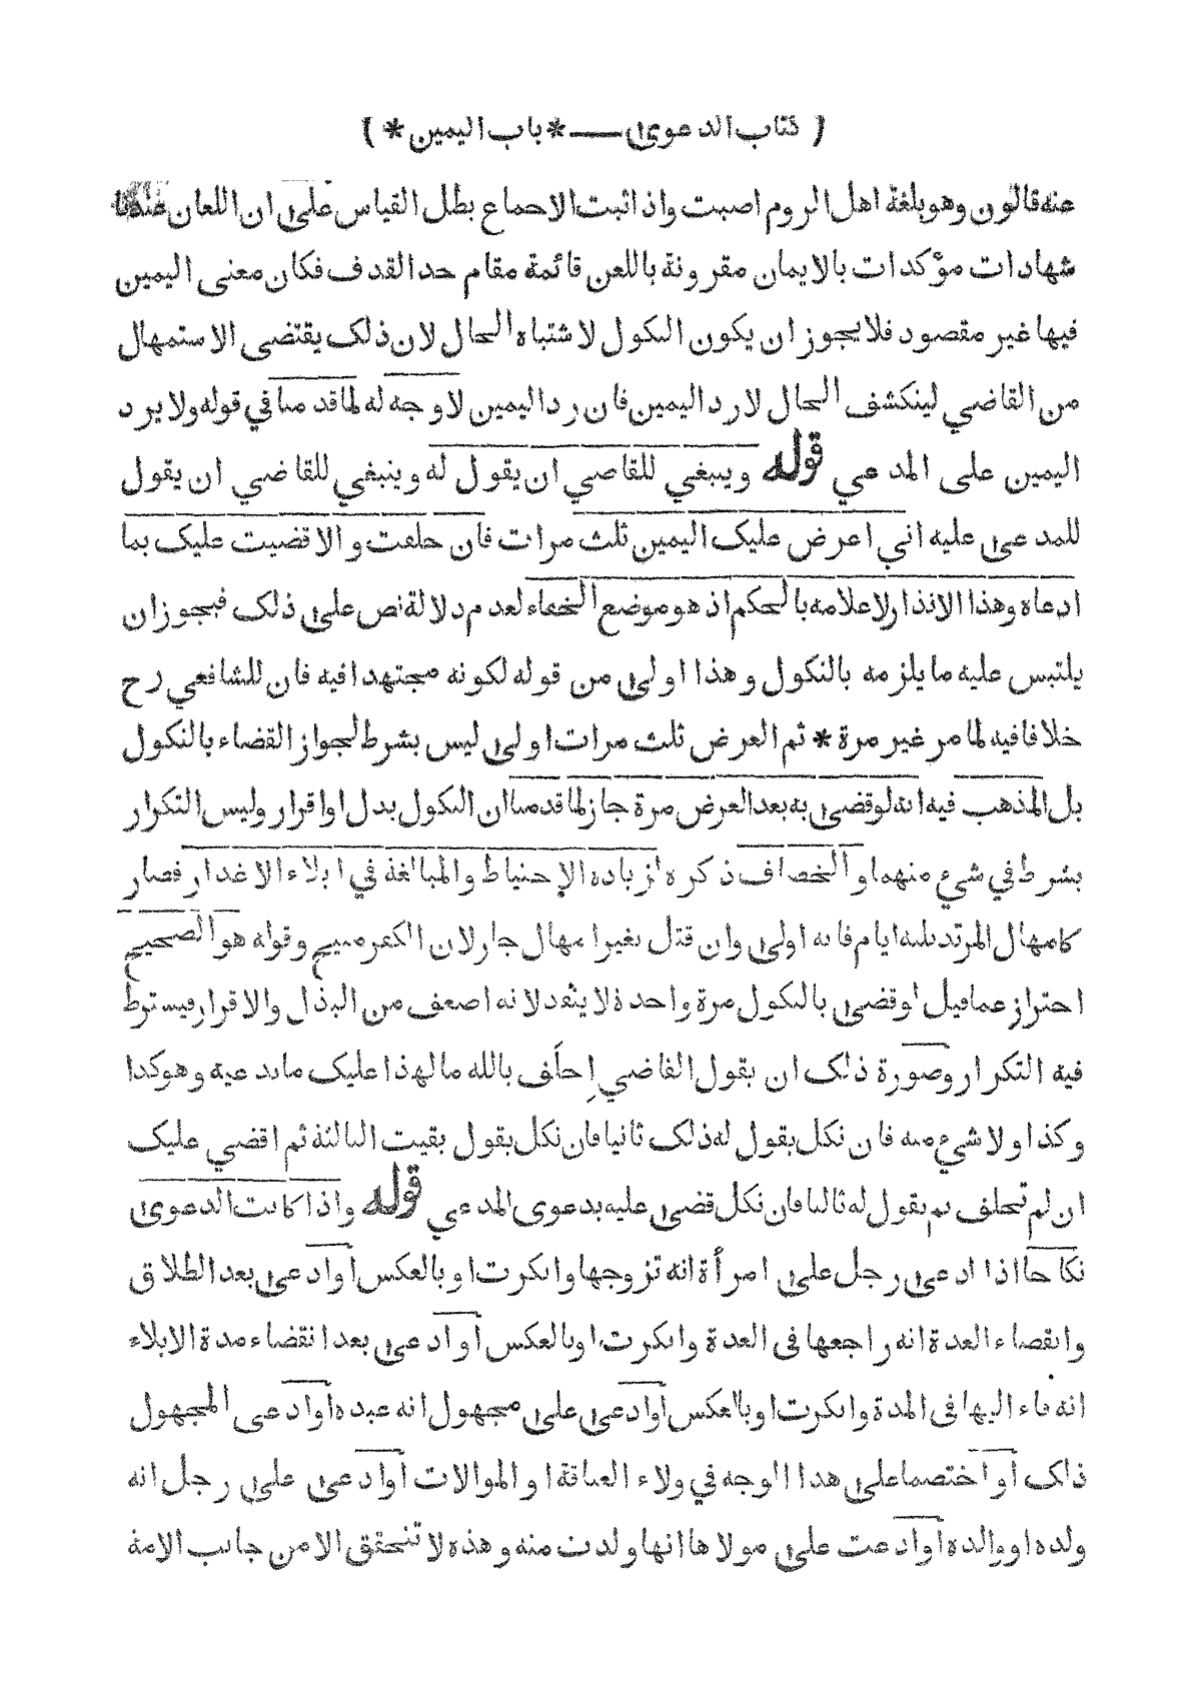 ( كتاب الدعوى — * باب اليمين * )
عنه قالون وهو بلغة اهل الروم اصبت واذ اثبت الاجماع بطل القياس على ان اللعان عندنا
شهادات مؤكدات بالايمان مقرونة باللعن قائمة مقام حد القذف فكان معنى اليمين
فيها غير مقصود فلا يجوز ان يكون النكول لاشتباه الحال لان ذلك يقتضى الاستمهال
من القاضي لينكشف الحال لا رد اليمين فان رد اليمين لا وجه له لما قدمنا في قوله ولا يرد
اليمين على المدعي قوله وينبغي للقاضي ان يقول له وينبغي للقاضي ان يقول
للمدعى عليه اني اعرض عليك اليمين ثلث مرات فان حلفت والا قضيت عليك بما
ادعاه وهذا الانذار لاعلامه بالحكم اذ هو موضع الخفاء لعدم دلالة نص على ذلك فيجوز ان
يلتبس عليه ما يلزمه بالنكول وهذا اولى من قوله لكونه مجتهدا فيه فان للشافعي رح
خلافا فيه لما مر غير مرة * ثم العرض ثلث مرات اولى ليس بشرط لجواز القضاء بالنكول
بل المذهب فيه انه لو قضى به بعد العرض مرة جاز لما قدمنا ان النكول بدل او اقرار وليس التكرار
بشرط في شيء منهما والخصاف ذكره لزيادة الاحتياط والمبالغة في ابلاء الاعذار فصار
كامهال المرتد ثلثة ايام فانه اولى وان قتل بغير امهال جاز لان الكفر مبيح وقوله هو الصحيح
احتراز عما قيل لو قضى بالنكول مرة واحدة لا ينفذ لانه اضعف من البذل والاقرار فيشترط
فيه التكرار وصورة ذلك ان يقول القاضي احلف بالله ما لهذا عليك ما يدعيه وهو كذا
وكذا ولا شيء منه فان نكل يقول له ذلك ثانيا فان نكل يقول بقيت الثالثة ثم اقضي عليك
ان لم تحلف ثم يقول له ثالثا فان نكل قضى عليه بدعوى المدعي قوله واذا كانت الدعوى
نكاحا اذا ادعى رجل على امرأة انه تزوجها وانكرت او بالعكس او ادعى بعد الطلاق
وانقضاء العدة انه راجعها فى العدة وانكرت او بالعكس او ادعى بعد انقضاء مدة الايلاء
انه فاء اليها فى المدة وانكرت او بالعكس او ادعى على مجهول انه عبده او ادعى المجهول
ذلك او اختصما على هذا الوجه في ولاء العتاقة او الموالات او ادعى على رجل انه
ولده او والده او ادعت على مولاها انها ولدت منه وهذه لا تتحقق الا من جانب الامة